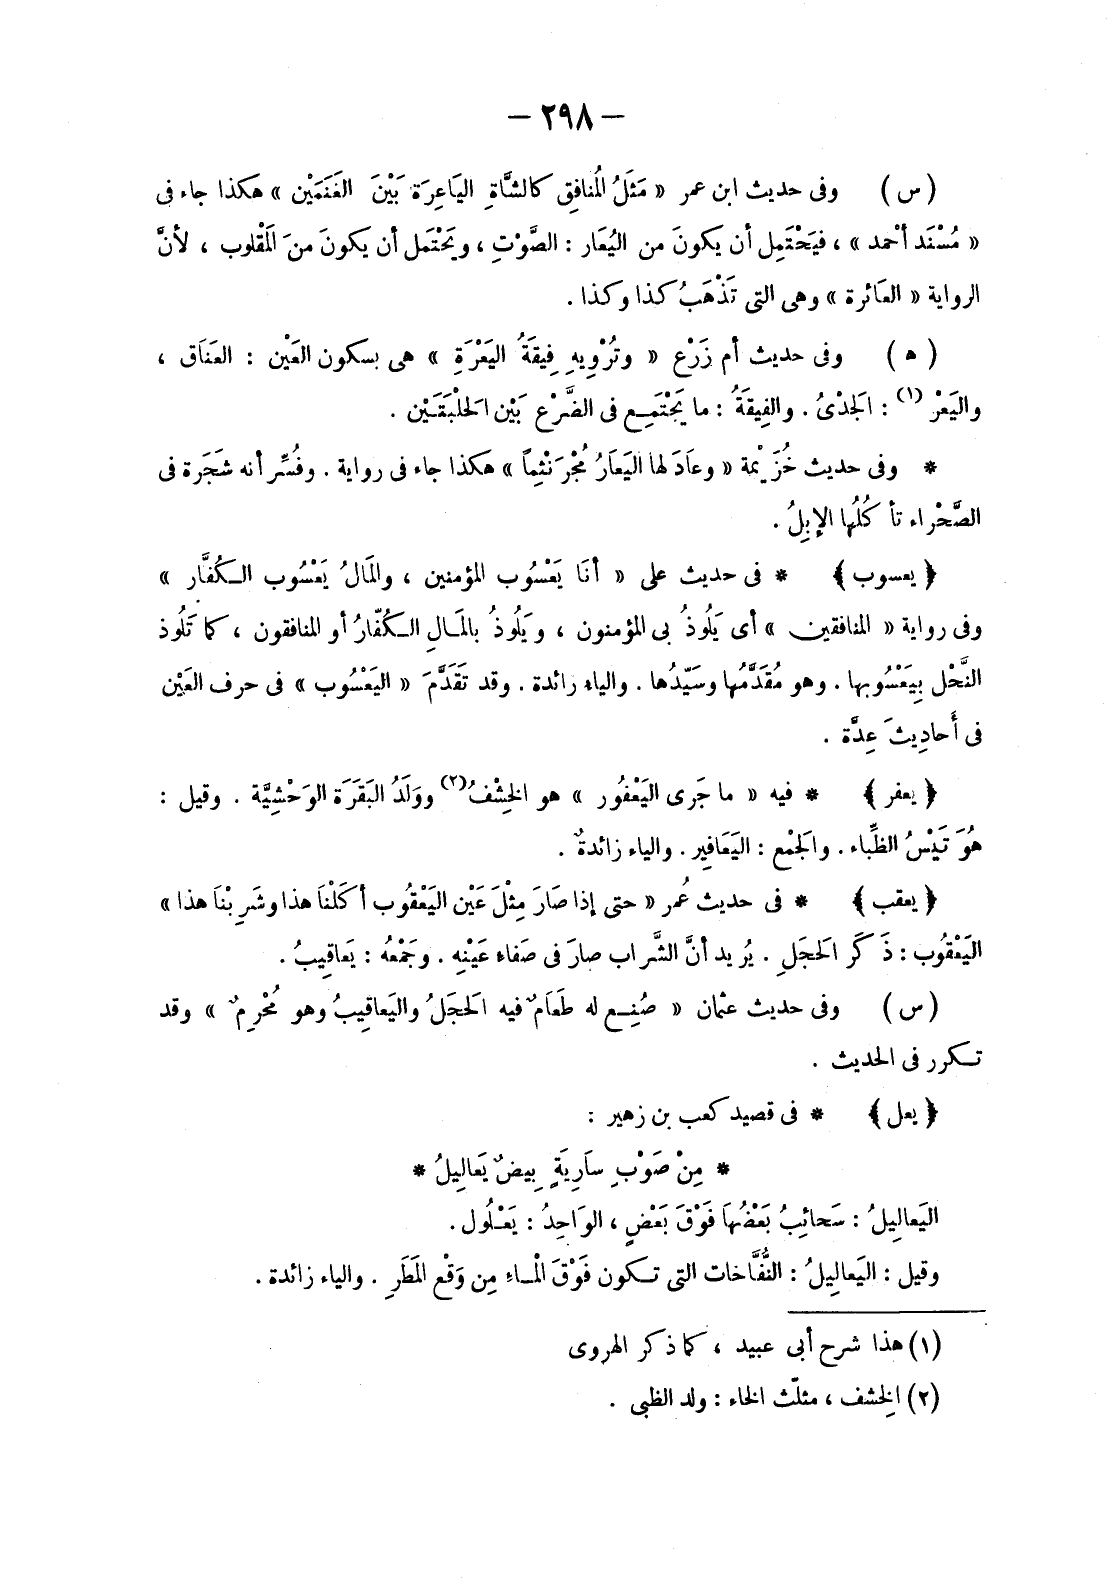 — ٢٩٨ —
(س) وفى حديث ابن عمر « مَثَلُ المُنافِق كالشَّاةِ اليَاعِرَة بَيْنَ الغَنَمَيْن » هكذا جاء فى
« مُسْنَد أحْمد » ، فيَحْتَمِل أن يكونَ من اليُعَار : الصَّوْتِ ، ويَحْتَمل أن يكونَ منَ المَقْلوب ، لأنَّ
الرواية « العَائرة » وهى التى تَذْهَبُ كذا وكذا .
(ه) وفى حديث أم زَرْع « وتُرْوِيهِ فِيقَةُ اليَعْرَةِ » هى بسكون العَيْن : العَنَاق ،
واليَعْرُ (١) : الجَدْىُ . والفِيقَةُ : ما يَجْتَمِـع فى الضَّرْع بَيْن الحَلْبَتَيْن .
* وفى حديث خُزَيْمة « وعَادَ لها اليَعَارُ مُجْرَنْثِماً » هكذا جاء فى رواية . وفُسِّر أنه شَجَرة فى
الصَّحْراء تأكُلُها الإبِلُ .
﴿ يعسوب ﴾ * فى حديث على « أنَا يَعْسُوب المؤمنين ، والمَالُ يَعْسُوب الـكُفَّار »
وفى رواية « المنافقين » أى يَلُوذُ بى المؤمنون ، ويَلُوذُ بالمَـالِ الـكُفّارُ أو المنافقون ، كما تَلُوذ
النَّحْل بِيَعْسُوبها . وهو مُقَدَّمُها وسَيّدُها . والياء زائدة . وقد تقَدَّمَ « اليَعْسُوب » فى حرف العَيْن
فى أَحادِيثَ عِدَّة .
﴿ يعفر ﴾ * فيه « ما جَرى اليَعْفُور » هو الخِشْفُ(٢) ووَلَدُ البَقَرَة الوَحْشِيَّة . وقيل :
هُوَ تَيْسُ الظِّباء . والجَمْع : اليَعَافِير . والياء زائدةٌ .
﴿ يعقب ﴾ * فى حديث عُمر « حتى إذا صَارَ مِثْلَ عَيْن اليَعْقُوب أكَلْنَا هذا وشَرِبْنَا هذا »
اليَعْقُوب : ذَكَر الحَجَلِ . يُريد أنَّ الشَّراب صارَ فى صَفاء عَيْنِه . وجَمْعُه : يَعاقِيبُ .
(س) وفى حديث عثمان « صُنِـع له طَعَامٌ فيه الحَجَلُ واليَعاقِيبُ وهو مُحْرِمٌ » وقد
تـكرر فى الحديث .
﴿ يعل ﴾ * فى قصيد كعب بن زهير :
* مِنْ صَوْبِ سَارِيَةٍ بِيضٌ يَعَالِيلُ *
اليَعالِيلُ : سَحائِبُ بَعْضُها فَوْقَ بَعْضٍ ، الوَاحِدُ : يَعْـلُول .
وقيل : اليَعالِيلُ : النُّفَّاخات التى تـكون فَوْقَ الْمـاءِ مِن وَقْع المَطَرِ . والياء زائدة .
(١) هذا شرح أبى عبيد ، كما ذكر الهروى
(٢) الخِشف ، مثلّث الخاء : ولد الظبى .